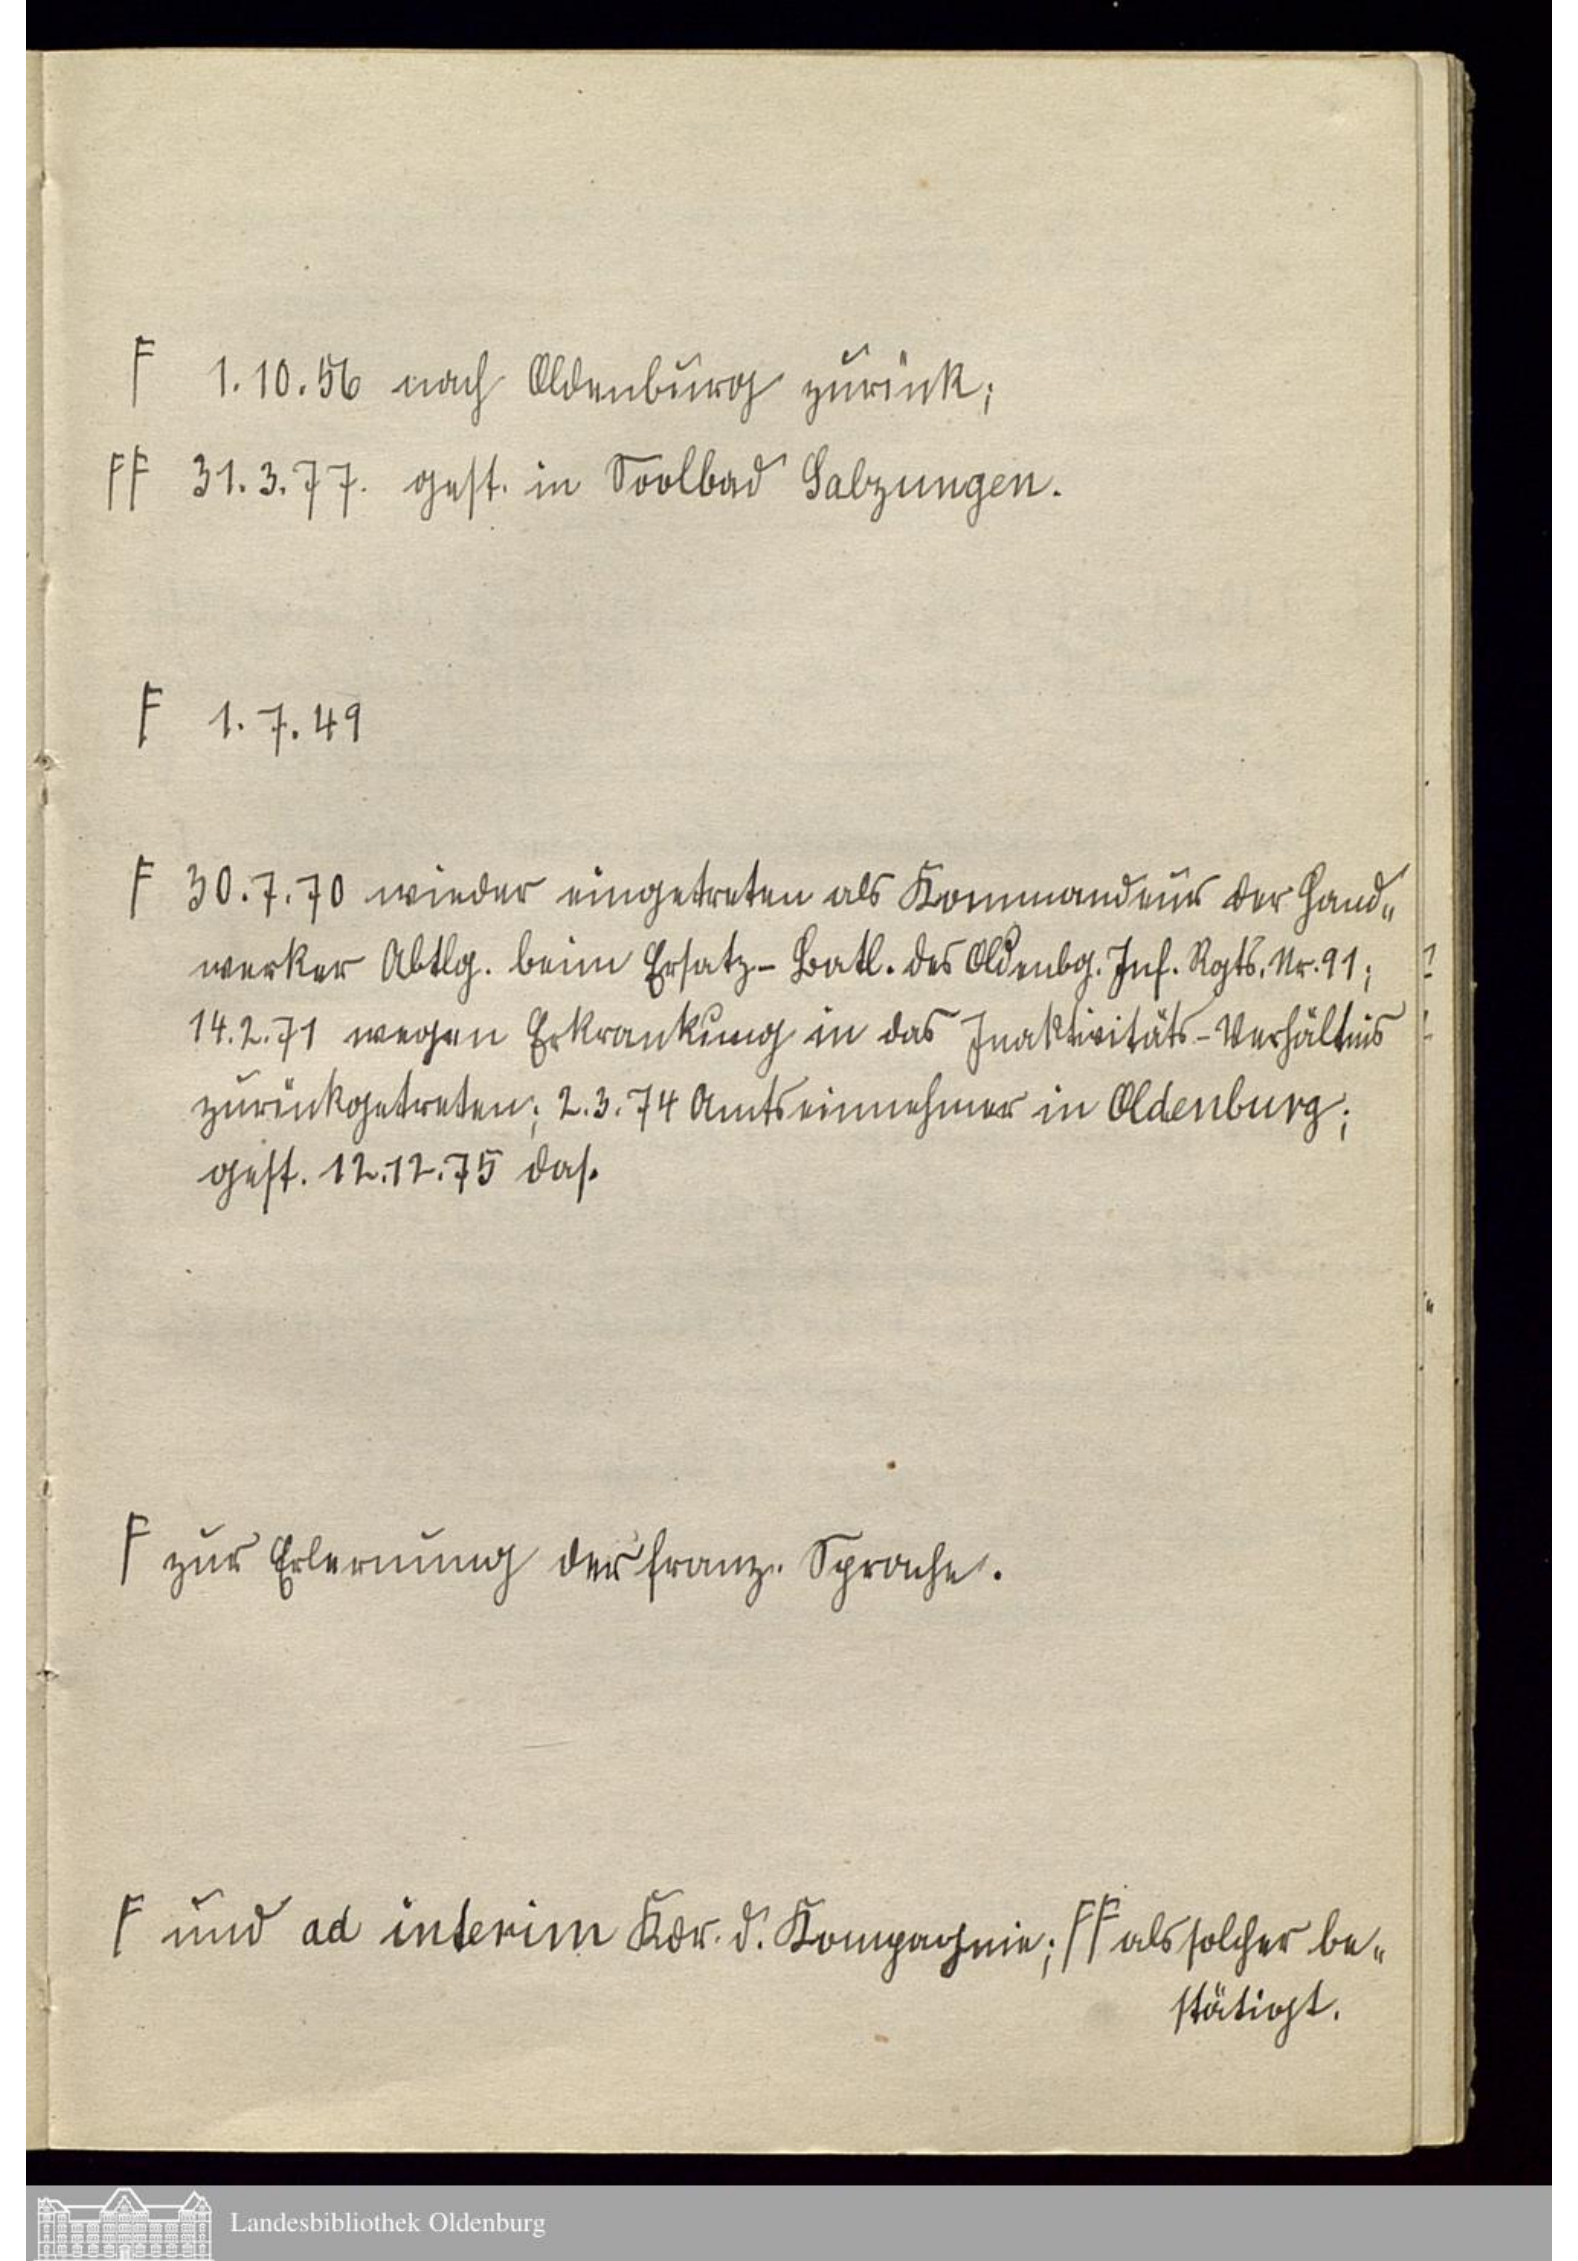 F 1.10.56 nach Oldenburg zurück;
FF 31.3.77. gest. in Soolbad Salzungen.
F 1.7.49
F 30.7.70 wieder eingetreten als Kommandeur der Hand„
werker Abtlg. beim Ersatz-Batl. des Oldenbg. Inf. Rgts. Nr. 91;
14.2.71 wegen Erkrankung in das Inaktivitäts-Verhältnis
zurückgetreten; 2.3.74 Amtseinnehmer in Oldenburg;
gest. 12.12.75 das.
F zur Erlernung der franz. Sprache.
F und ad interim Kdr. d. Kompagnie; FF als solcher be„
stätigt.
Landesbibliothek Oldenburg